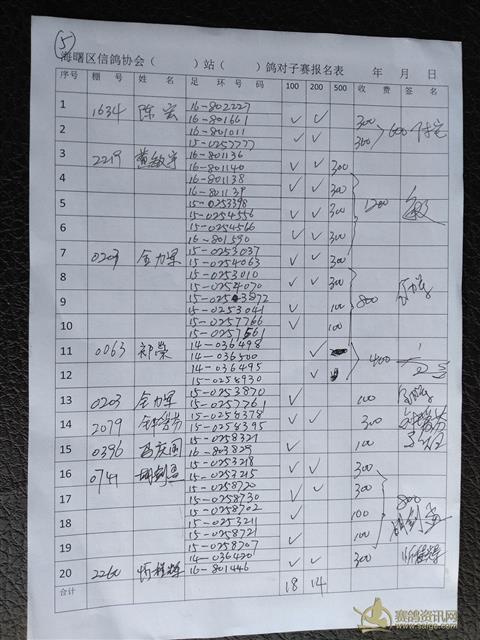 (5)
海曙区信鸽协会( )站( )鸽对子赛报名表 年 月 日
序号 棚号 姓名 足环号码 100 200 500 收费 签名
1 1634 陈宏 16-802227 ✓ ✓ 300
16-801661
2 16-801011 ✓ ✓ 300 600
15-0257777
3 2219 16-801136 ✓ ✓ 300
16-801140
4 16-801138 ✓ ✓ 300
16-801139
5 15-0253398 ✓ ✓ 300 1200
15-0254556
6 15-0254566 ✓ ✓ 300
16-801590
7 0203 金力军 15-0253037 ✓ ✓ 300
15-0254063
8 15-0253010 ✓ ✓ 300
15-0254070
9 15-0253872 ✓ 100 800
15-0253041
10 15-0257766 ✓ 100
15-0257561
11 0063 祁荣 14-036498 ✓
14-036500
12 14-036495 ✓ 400
15-0258930
13 0203 金力军 15-0253870 ✓ 100
15-0257761
14 2079 15-0258378 ✓ ✓ 300
15-0258395
15 0396 15-0258321 ✓ 100
16-803829
16 0741 15-0253218 ✓ ✓ 300
15-0253215
17 15-0258720 ✓ ✓ 300
15-0258730
18 15-0258702 ✓ 100 800
15-0253211
19 15-0258721 ✓ 100
15-0258707
20 2260 14-036420 ✓ ✓ 300
16-801446
合计 18 14
赛鸽资讯网
www.saige.com